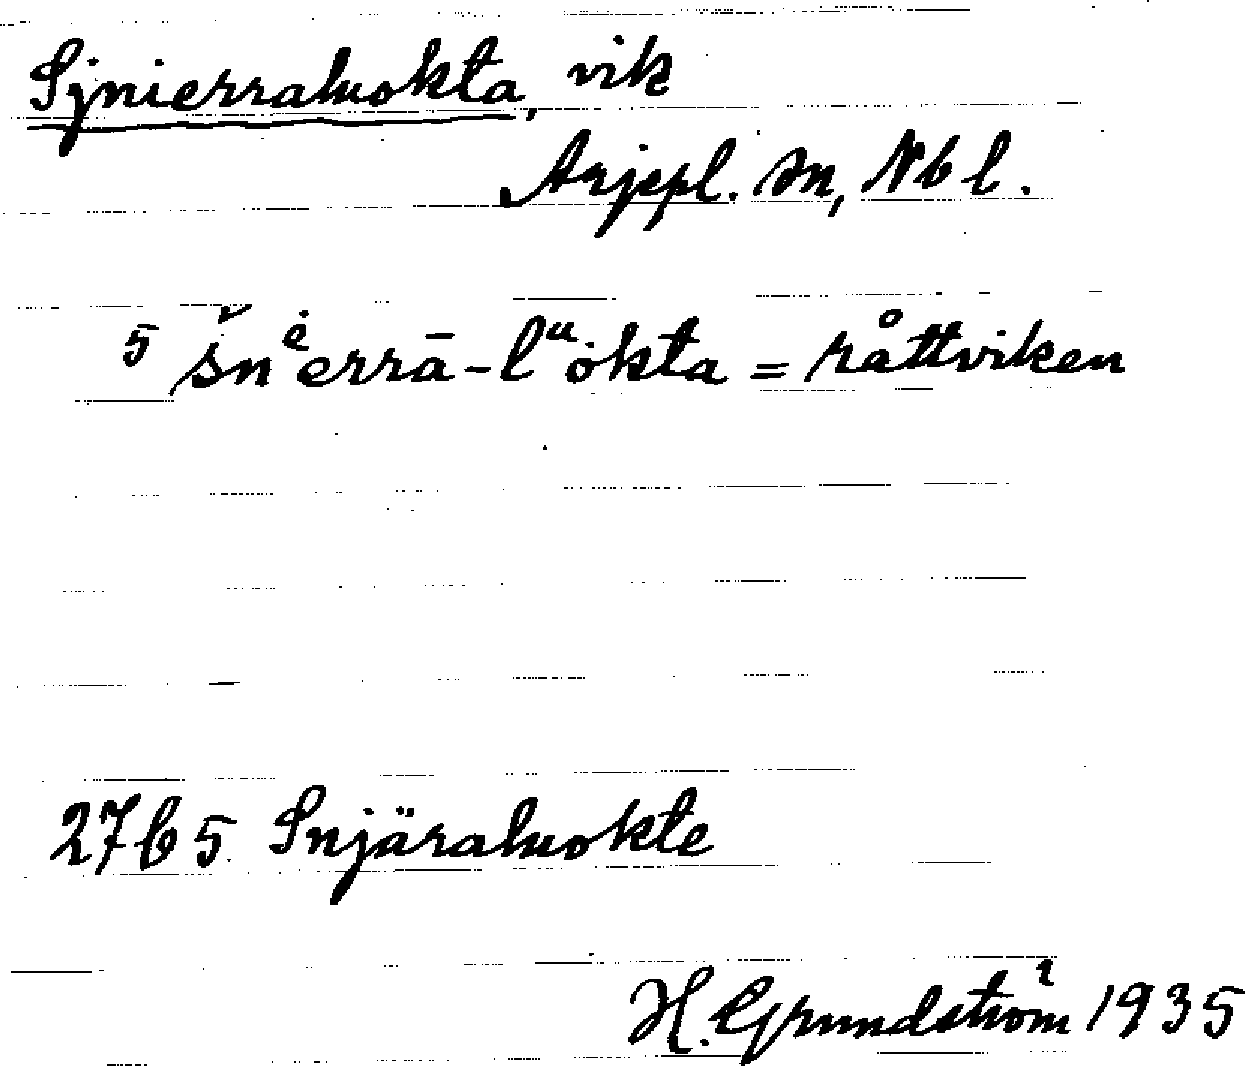 Sjnierraluokta, vik
Arjepl. sn, Nbl.
5 šnėerrā-luȯkta = råttviken
27b5 Snjäraluokte
H. Grundström 1935